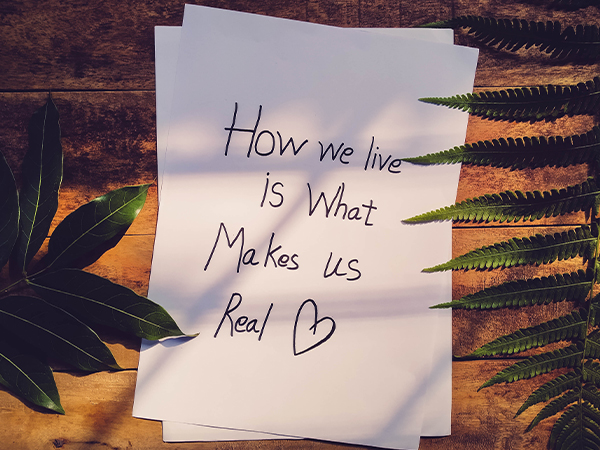 How we live
is What
Makes us
Real